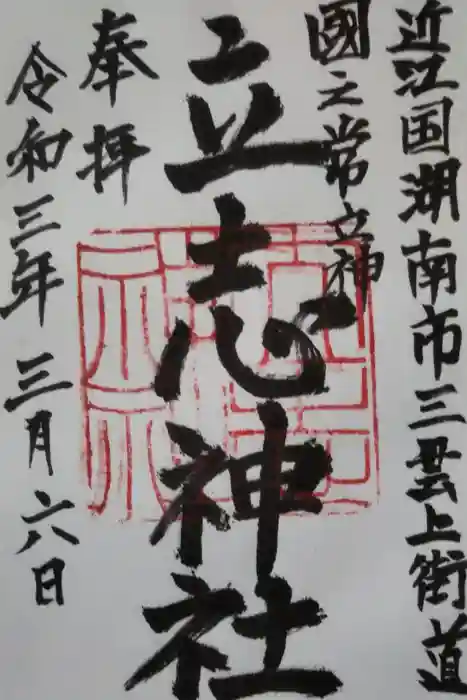 近江国湖南市三雲上街道
國之常立神
立志神社
奉拝
令和三年三月六日